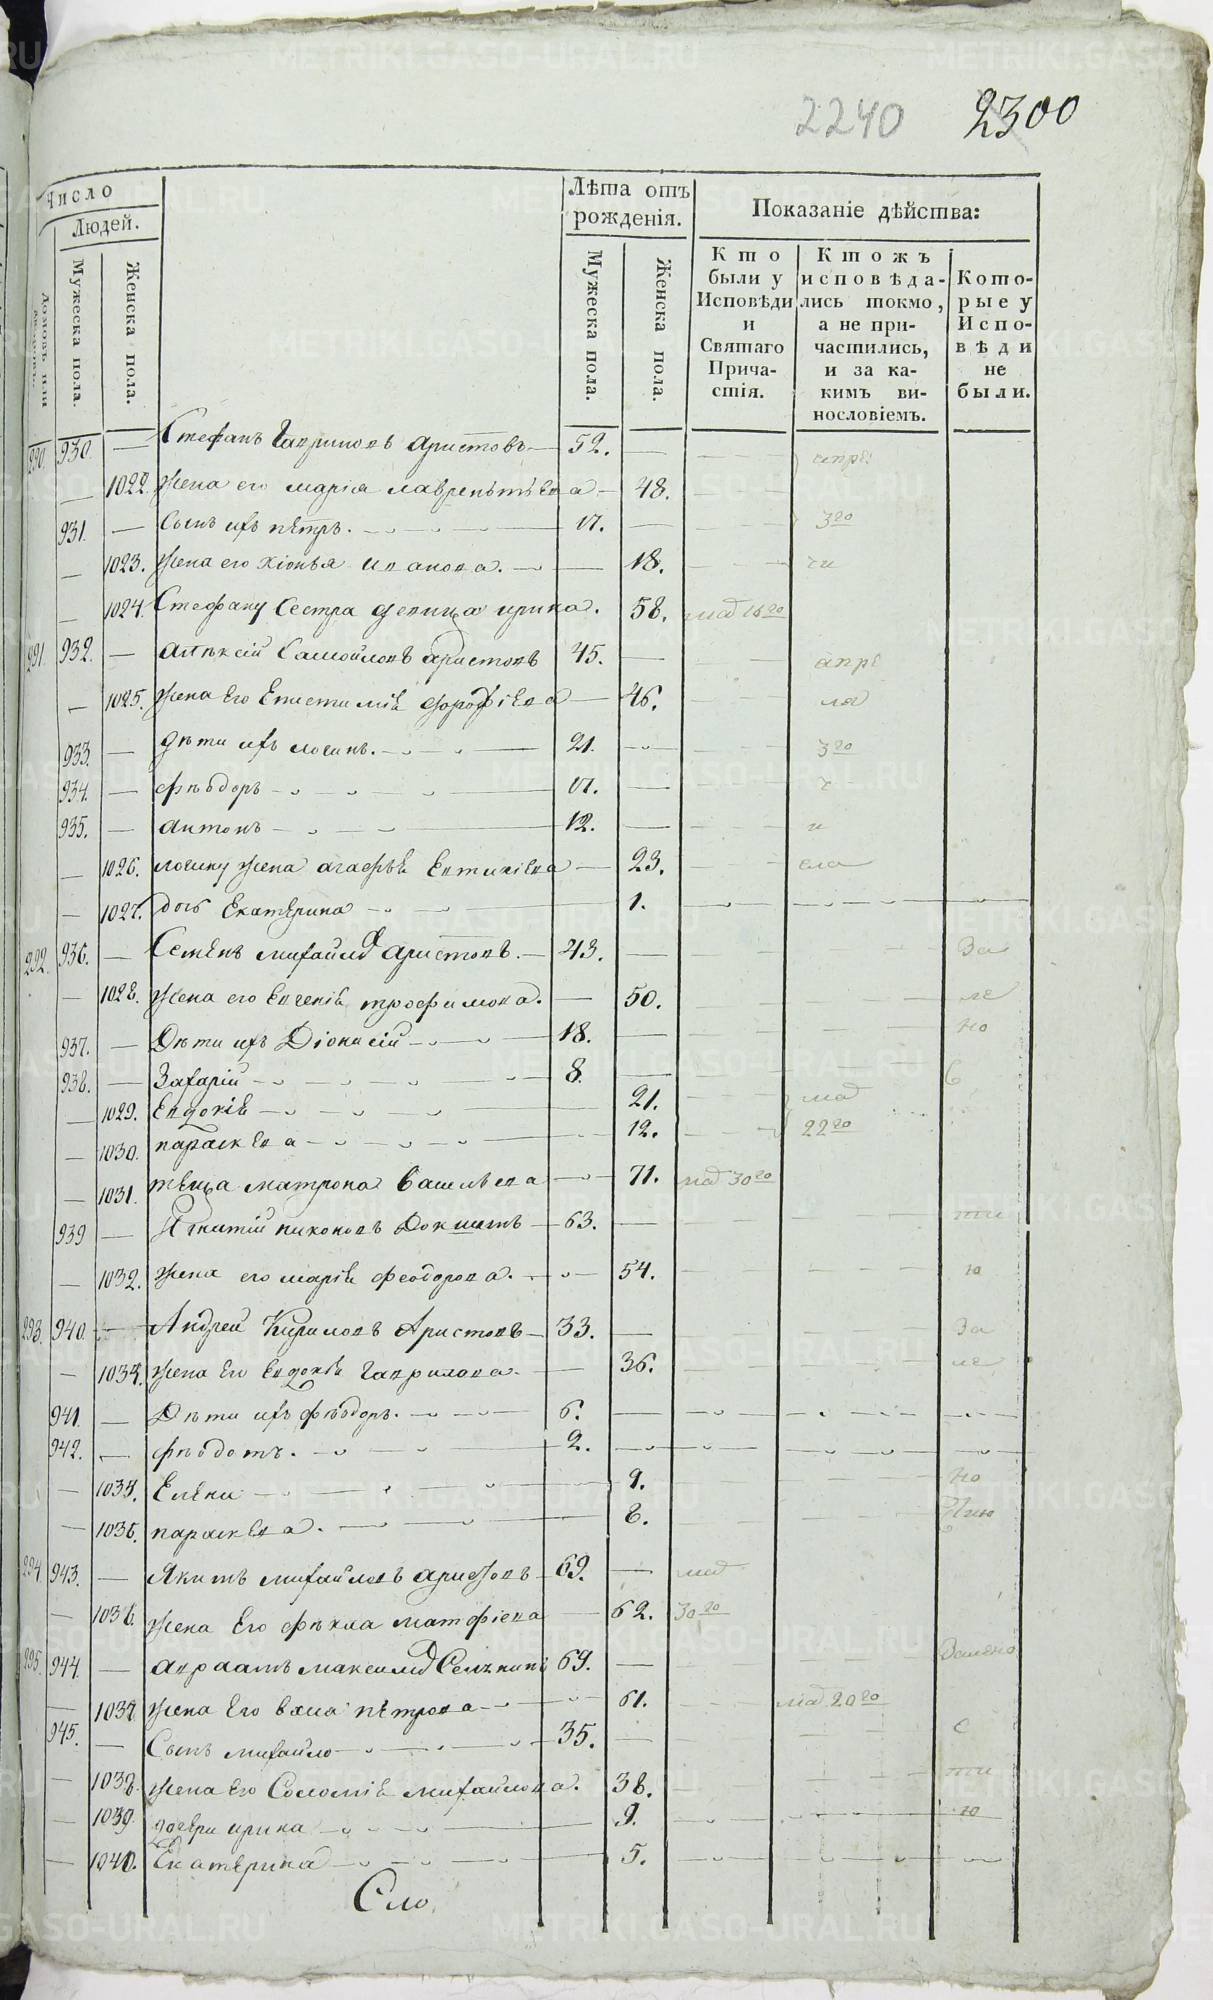 2240 2300
Число
Людей.
Мужеска пола.
Женска пола.
Лѣта отъ
рожденія.
Мужеска пола.
Женска пола.
Показаніе дѣйства:
Кто
были у
Исповѣди
и
Святаго
Прича-
стія.
Ктожъ
исповѣда-
лись токмо,
а не при-
частились,
и за ка-
кимъ ви-
нословіемъ.
Кото-
рые у
Испо-
вѣди
не
были.
290. 930. — Стефанъ Гавриловъ Аристовъ — 52. —
— 1022. Жена его марія лаврентьева — 48.
931. — Сынъ ихъ пѣтръ. — 17. — 3го
— 1023. Жена его хіонья иванова. — 18.
— 1024. Стефану Сестра девица ирина. 58.
291. 932. — алѣксій Самойловъ аристовъ 45. — апрѣ
— 1025. Жена Его Епистимія дорофѣева — 46. ля
933. — дѣти ихъ логинъ. — 21. — 3го
934. — фѣодоръ — 17. —
935. — антонъ — 12. —
— 1026. логину жена агафья Евтихіева — 23.
— 1027. дочь Екатерина — 1.
292. 936. — Семѣнъ михайловъ аристовъ. — 43. — За
— 1028. Жена его Евгенія трофимова. — 50. ле
937. — Дѣти ихъ Діонисій — 18. — но
938. — Захарій — 8. —
— 1029. Евдокія — 21. маѧ
— 1030. параскева — 12. 22го
— 1031. тѣща матрона васильева — 71. маѧ 30го
939 — Игнатій никоновъ Докшинъ — 63. —
— 1032. Жена его марія феодорова. — 54. ю
293. 940. — Андрей Кириловъ Аристовъ — 33. — За
— 1033. Жена Его Евдокія Гаврилова. — 36. ле
941. — Дѣти ихъ фѣодоръ. — 6. —
942. — фѣодотъ. — 2. —
— 1034. Елѣна — 9. но
— 1035. параскева. — 8.
294. 943. — Якимъ михайловъ аристовъ — 69. —
— 1036. Жена Его фѣкла матфіева — 62. 30го
295. 944. — авраамъ максимовъ Селѣнинъ 69. —
— 1037. Жена Его васса пѣтрова — 61. маѧ 20го
945. — Сынъ михайло — 35. — с
— 1038. Жена Его Соломія михайлова. 38.
— 1039. дочери ирина — 9. ю
— 1040. Екатерина — 5.
Сло